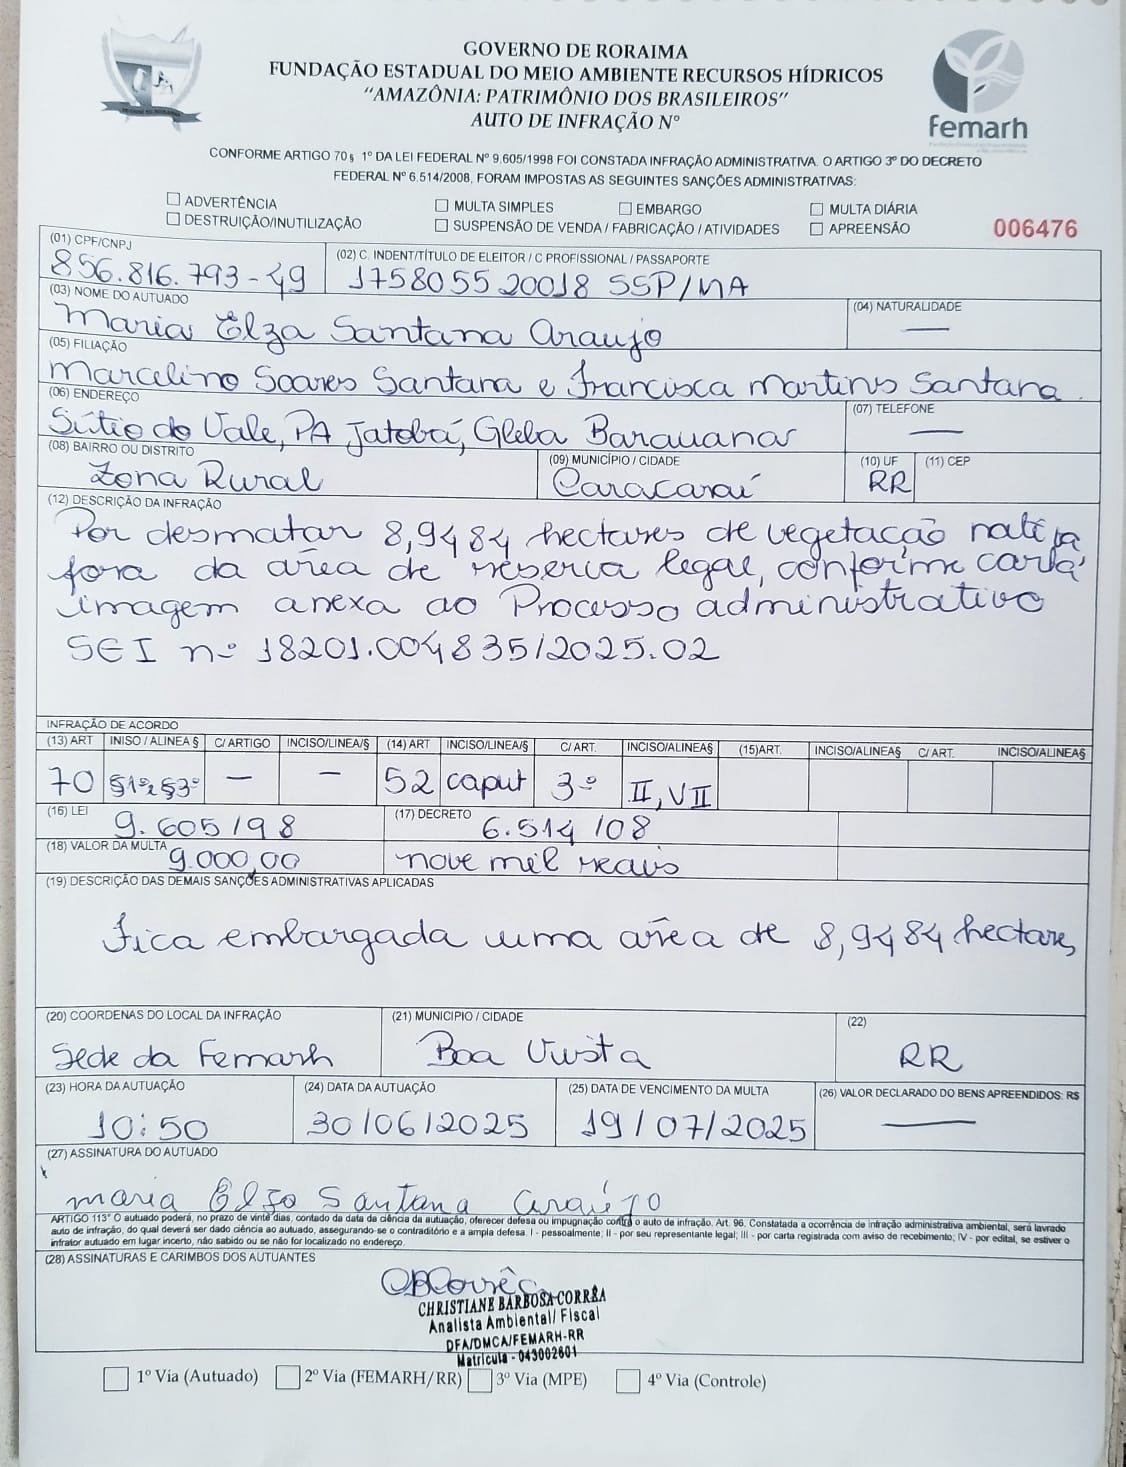 GOVERNO DE RORAIMA
FUNDAÇÃO ESTADUAL DO MEIO AMBIENTE RECURSOS HÍDRICOS
"AMAZÔNIA: PATRIMÔNIO DOS BRASILEIROS"
AUTO DE INFRAÇÃO Nº
femarh
CONFORME ARTIGO 70§ 1º DA LEI FEDERAL Nº 9.605/1998 FOI CONSTADA INFRAÇÃO ADMINISTRATIVA. O ARTIGO 3º DO DECRETO
FEDERAL Nº 6.514/2008, FORAM IMPOSTAS AS SEGUINTES SANÇÕES ADMINISTRATIVAS:
ADVERTÊNCIA MULTA SIMPLES EMBARGO MULTA DIÁRIA
DESTRUIÇÃO/INUTILIZAÇÃO SUSPENSÃO DE VENDA / FABRICAÇÃO / ATIVIDADES APREENSÃO
006476
(01) CPF/CNPJ (02) C. INDENT/TÍTULO DE ELEITOR / C PROFISSIONAL / PASSAPORTE
856.816.793-49 1758055 20018 SSP/MA
(03) NOME DO AUTUADO (04) NATURALIDADE
Maria Elza Santana Araujo —
(05) FILIAÇÃO
Marcelino Soares Santana e Francisca Martins Santana
(06) ENDEREÇO (07) TELEFONE
Sítio do Vale, PA Jatobá, Gleba Barauana —
(08) BAIRRO OU DISTRITO (09) MUNICÍPIO / CIDADE (10) UF (11) CEP
Zona Rural Caracaraí RR
(12) DESCRIÇÃO DA INFRAÇÃO
Por desmatar 8,9484 hectares de vegetação nativa
fora da área de reserva legal, conforme carta
imagem anexa ao Processo administrativo
SEI nº 18201.004835/2025.02
INFRAÇÃO DE ACORDO
(13) ART INISO / ALINEA § C/ ARTIGO INCISO/LINEA/§ (14) ART INCISO/LINEA/§ C/ ART. INCISO/ALINEA§ (15)ART. INCISO/ALINEA§ C/ ART. INCISO/ALINEA§
70 §1º, §3º — — 52 caput 3º II, VII
(16) LEI (17) DECRETO
9.605/98 6.514/08
(18) VALOR DA MULTA
9.000,00 nove mil reais
(19) DESCRIÇÃO DAS DEMAIS SANÇÕES ADMINISTRATIVAS APLICADAS
Fica embargada uma área de 8,9484 hectares
(20) COORDENAS DO LOCAL DA INFRAÇÃO (21) MUNICIPIO / CIDADE (22)
Sede da Femarh Boa Vista RR
(23) HORA DA AUTUAÇÃO (24) DATA DA AUTUAÇÃO (25) DATA DE VENCIMENTO DA MULTA (26) VALOR DECLARADO DO BENS APREENDIDOS: R$
10:50 30/06/2025 19/07/2025 —
(27) ASSINATURA DO AUTUADO
maria Elza Santana araújo
ARTIGO 113º O autuado poderá, no prazo de vinte dias, contado da data da ciência da autuação, oferecer defesa ou impugnação contra o auto de infração. Art. 96. Constatada a ocorrência de infração administrativa ambiental, será lavrado
auto de infração, do qual deverá ser dado ciência ao autuado, assegurando-se o contraditório e a ampla defesa. I - pessoalmente; II - por seu representante legal; III - por carta registrada com aviso de recebimento; IV - por edital, se estiver o
infrator autuado em lugar incerto, não sabido ou se não for localizado no endereço.
(28) ASSINATURAS E CARIMBOS DOS AUTUANTES
CBCorrêa
CHRISTIANE BARBOSA CORRÊA
Analista Ambiental/ Fiscal
DFA/DMCA/FEMARH-RR
Matrícula - 043002601
1º Via (Autuado) 2º Via (FEMARH/RR) 3º Via (MPE) 4º Via (Controle)